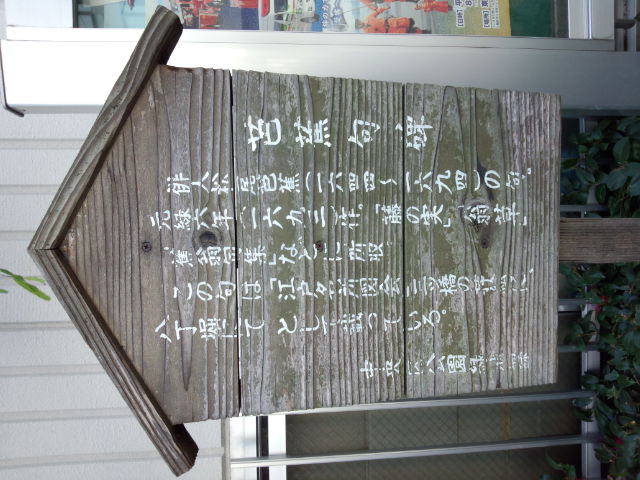 芭蕉句碑
俳人松尾芭蕉(一六四四～一六九四)の句。
元禄六年(一六九三)作。「藤の実」「翁草」
「蕉翁句集」などに所収
この句は「江戸名所図会」三ツ橋の に、
八丁堀にて として載っている。
中央区 公園緑